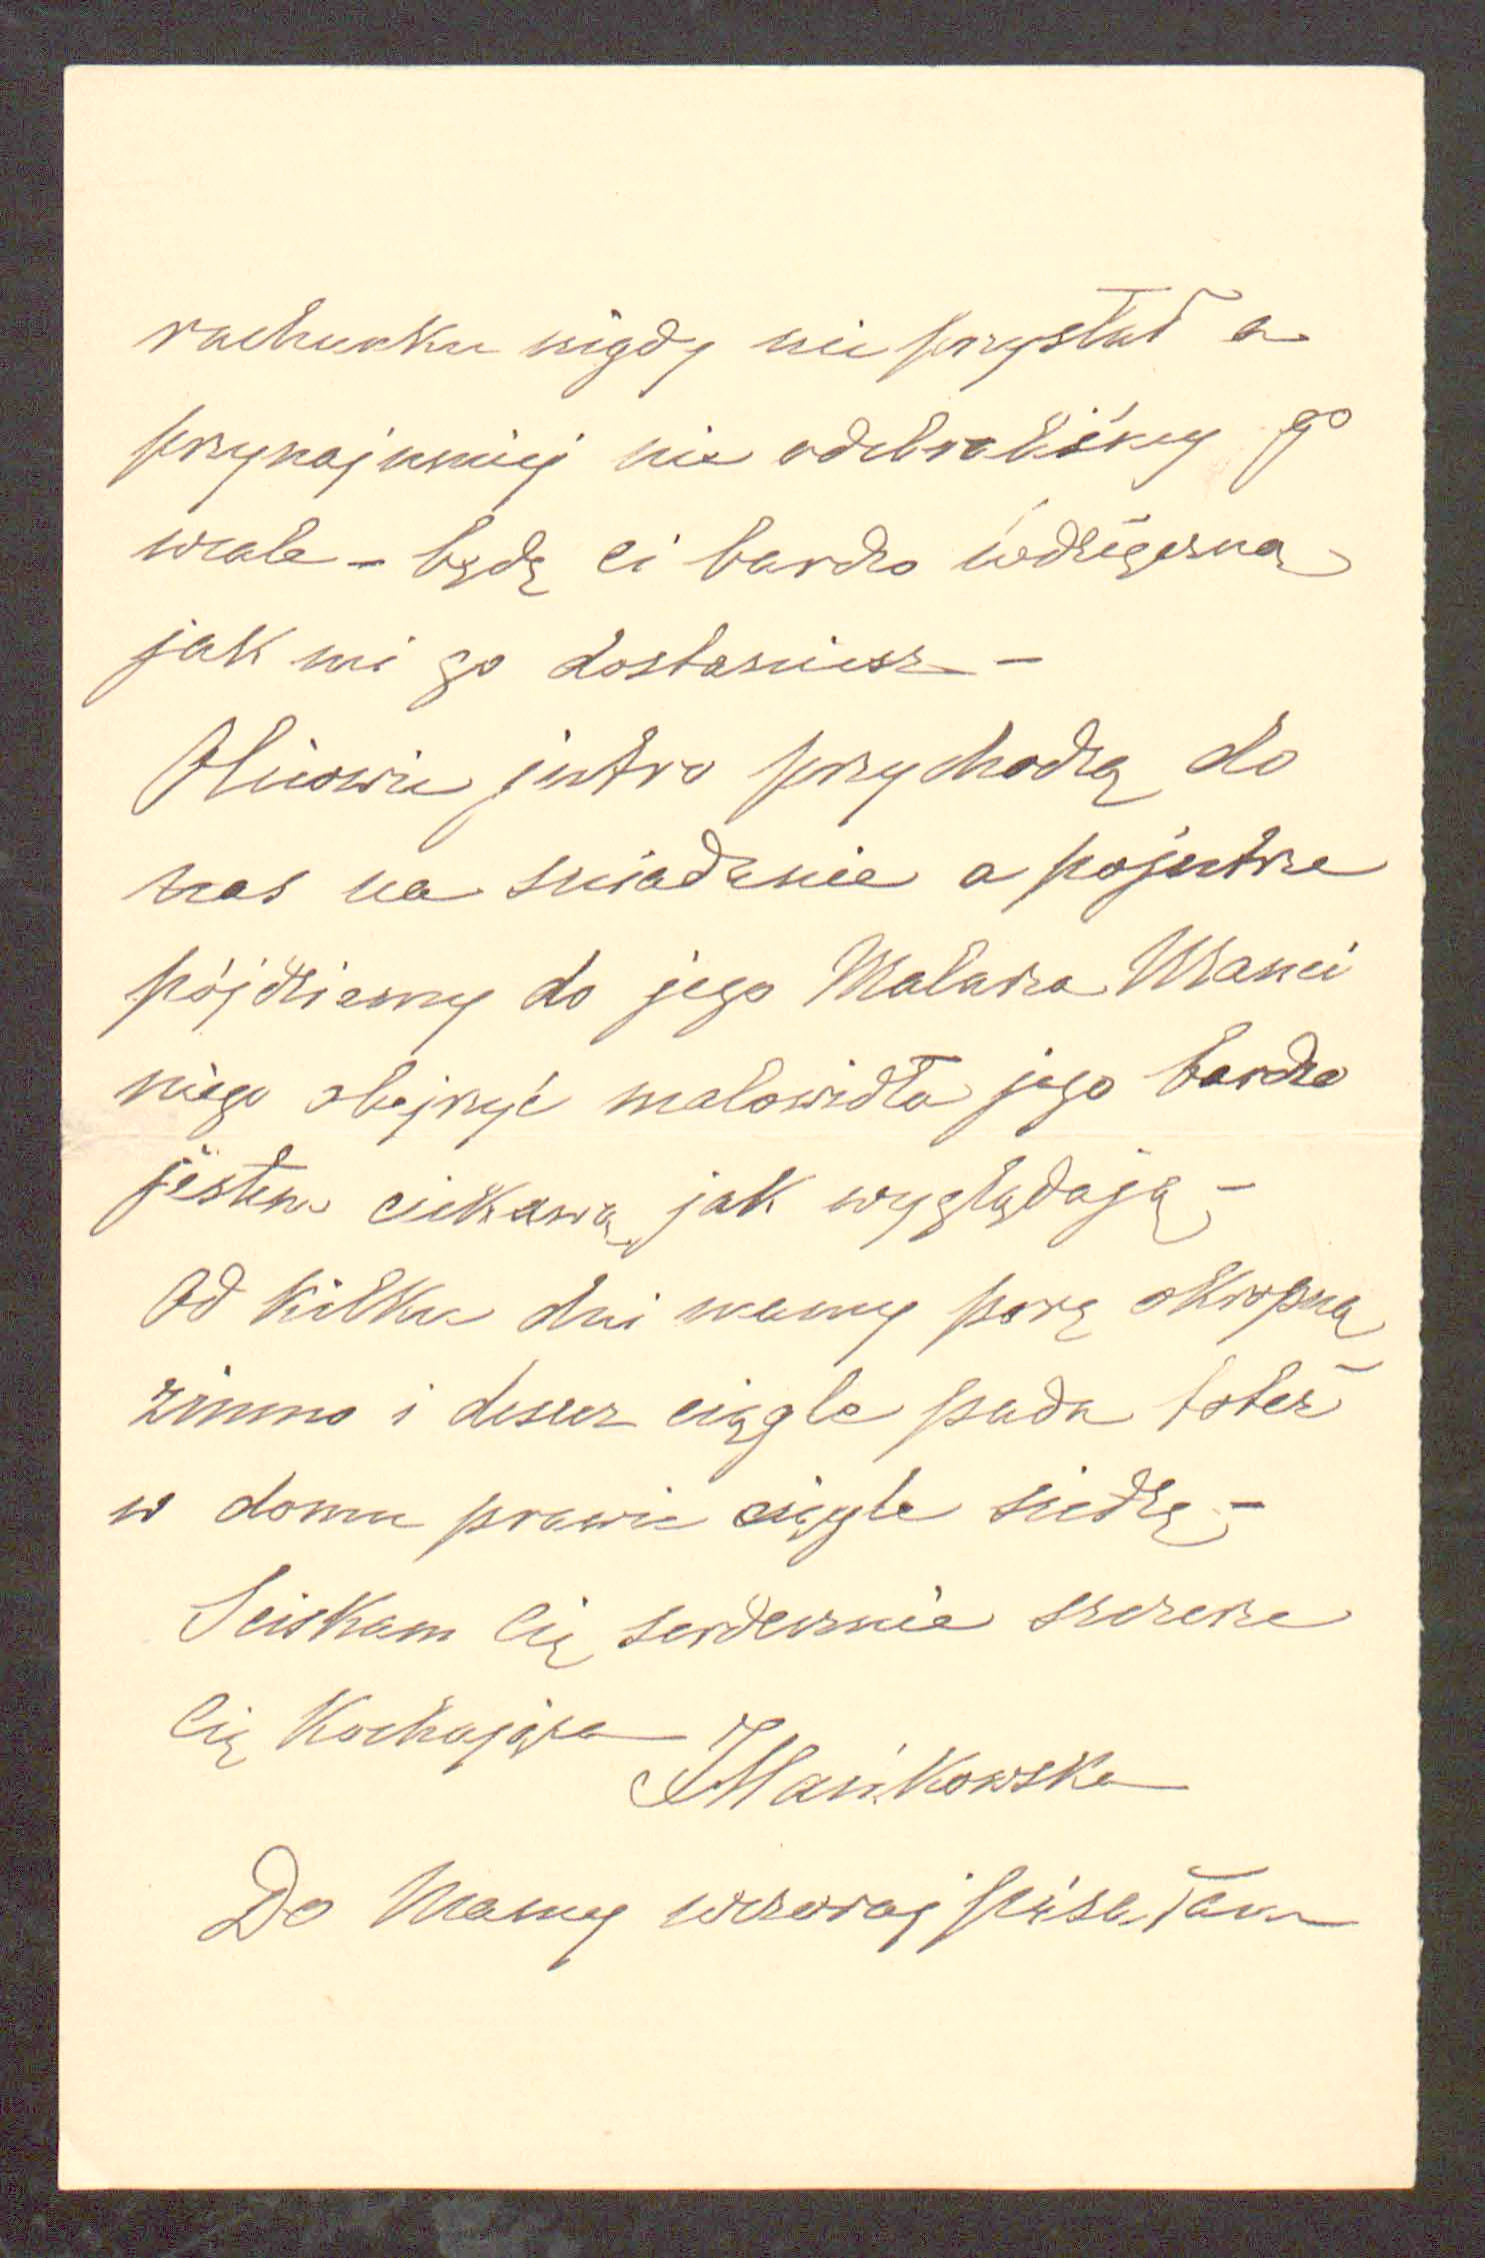 rachunku nigdy nie przysłał a
przynajmniej nie odebraliśmy go
wcale – będę ci bardzo wdzięczną
jak mi go dostaniesz –
jutro przychodzą do
nas na sniadanie a pojutrze
pójdziemy do jego Malarza
niego obejrzyć malowidła jego bardzo
jestem ciekawą jak wyglądają –
Od kilku dni mamy porę okropną
zimno i deszcz ciągle pada toteż
w domu prawie ciągle siedzę –
Sciskam Cię serdecznie szczerze
Cię Kochająca
JMańkowska
Do Mamy wczoraj pisałam